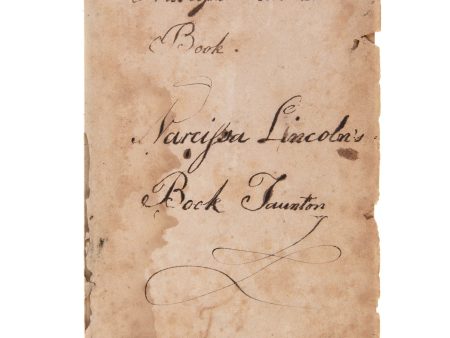 Book.
Narciſsa Lincoln's
Book Taunton